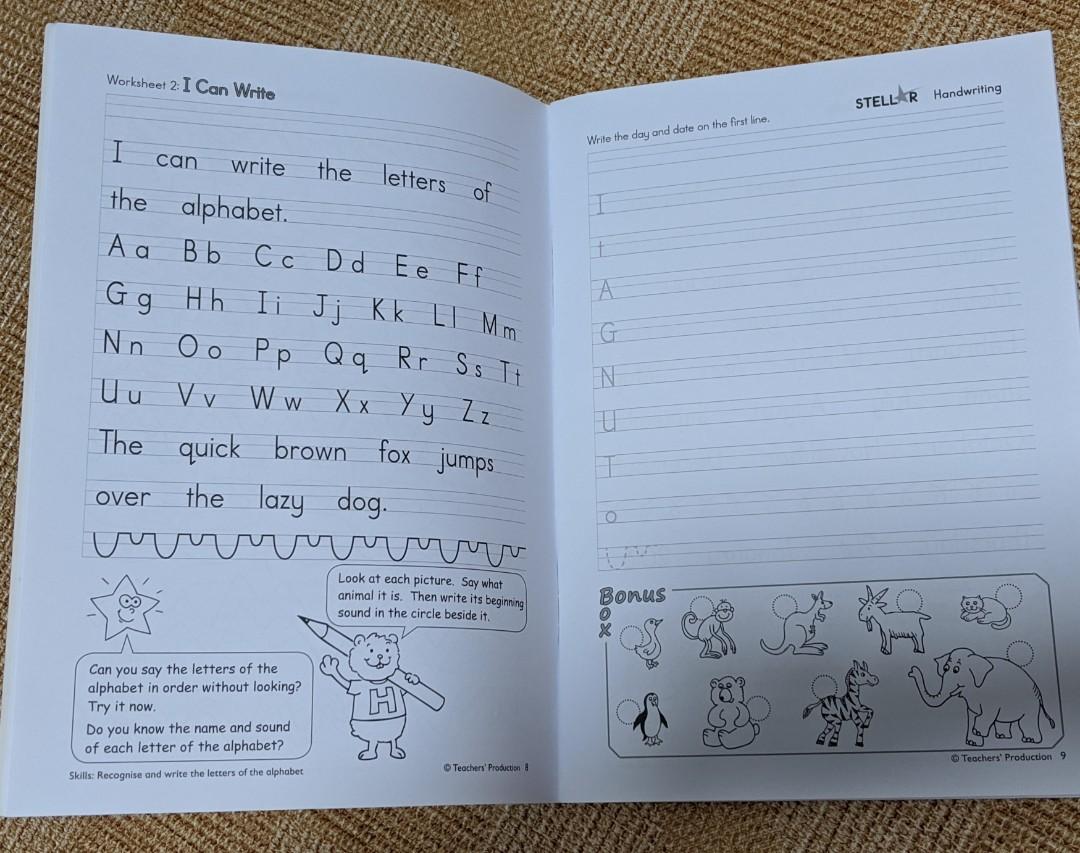 Worksheet 2: I Can Write
I can write the letters of
the alphabet.
Aa Bb Cc Dd Ee Ff
Gg Hh Ii Jj Kk Ll Mm
Nn Oo Pp Qq Rr Ss Tt
Uu Vv Ww Xx Yy Zz
The quick brown fox jumps
over the lazy dog.
Look at each picture. Say what
animal it is. Then write its beginning
sound in the circle beside it.
Can you say the letters of the
alphabet in order without looking?
Try it now.
Do you know the name and sound
of each letter of the alphabet?
H
Skills: Recognise and write the letters of the alphabet
© Teachers' Production 8
STELLAR Handwriting
Write the day and date on the first line.
I
t
A
G
N
U
T
o
Bonus
Box
© Teachers' Production 9